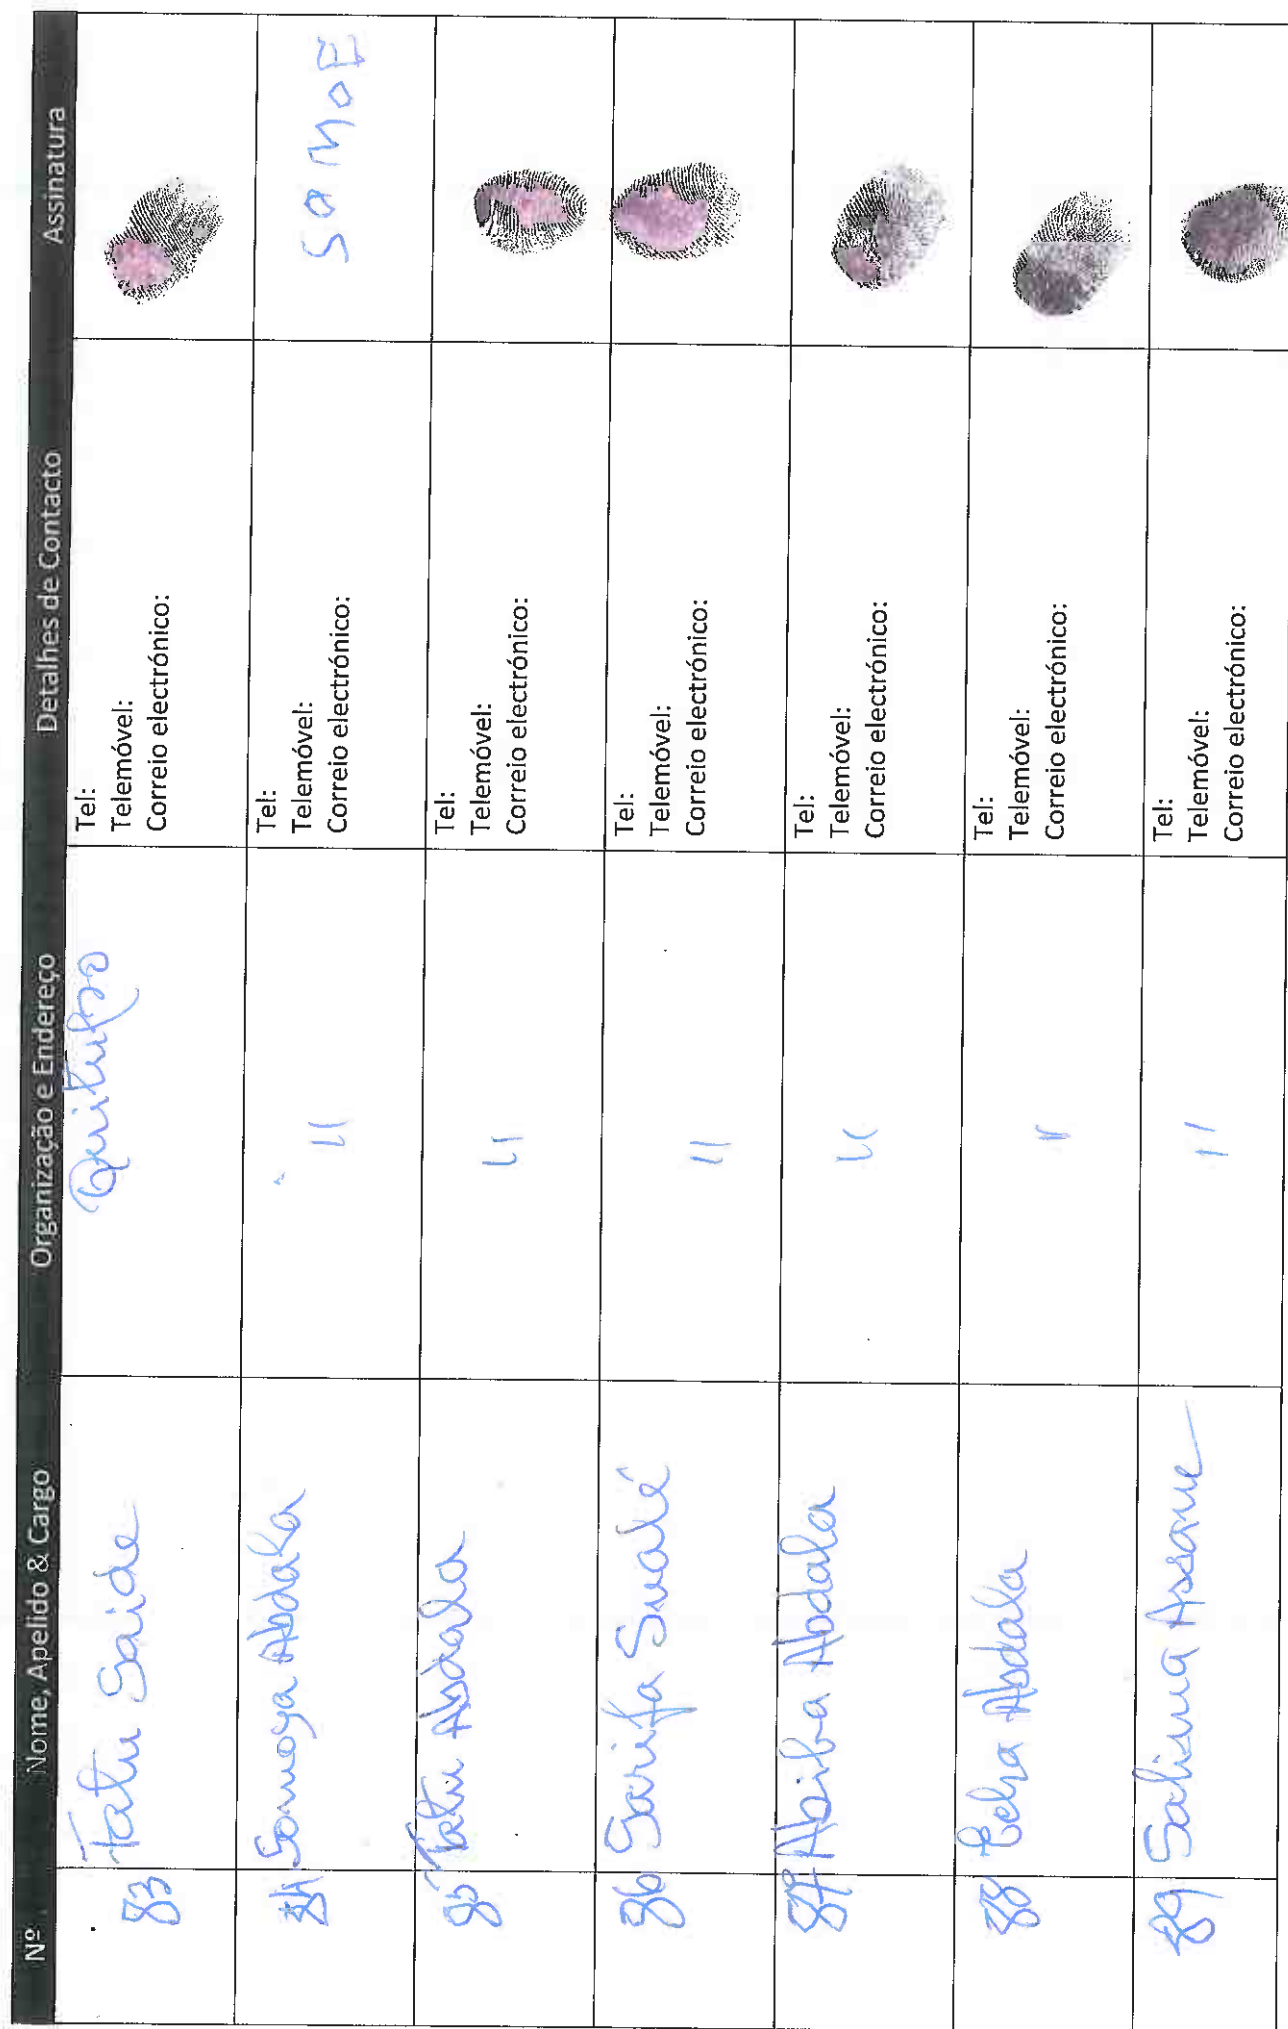 Nº Nome, Apelido & Cargo Organização e Endereço Detalhes de Contacto Assinatura
83 Fatu Saide Quitupo Tel:
Telemóvel:
Correio electrónico:
84 Somoya Abdala " Tel:
Telemóvel:
Correio electrónico:
SOMOE
85 Tatu Abdala " Tel:
Telemóvel:
Correio electrónico:
86 Sarifa Sualé " Tel:
Telemóvel:
Correio electrónico:
87 Abiba Abdala " Tel:
Telemóvel:
Correio electrónico:
88 Abdala " Tel:
Telemóvel:
Correio electrónico:
89 Salima Assane " Tel:
Telemóvel:
Correio electrónico: